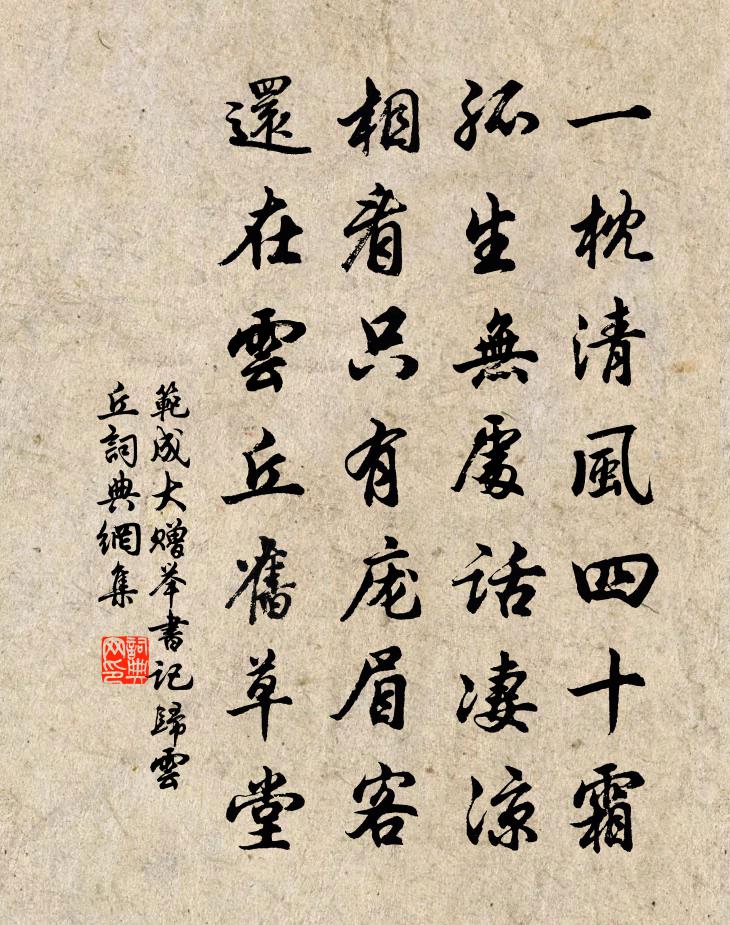 一枕清風四十霜
孤生無處話淒涼
相看只有庞眉客
還在雲丘舊草堂
範成大赠举書記歸雲
丘詞典網集
詞典网印